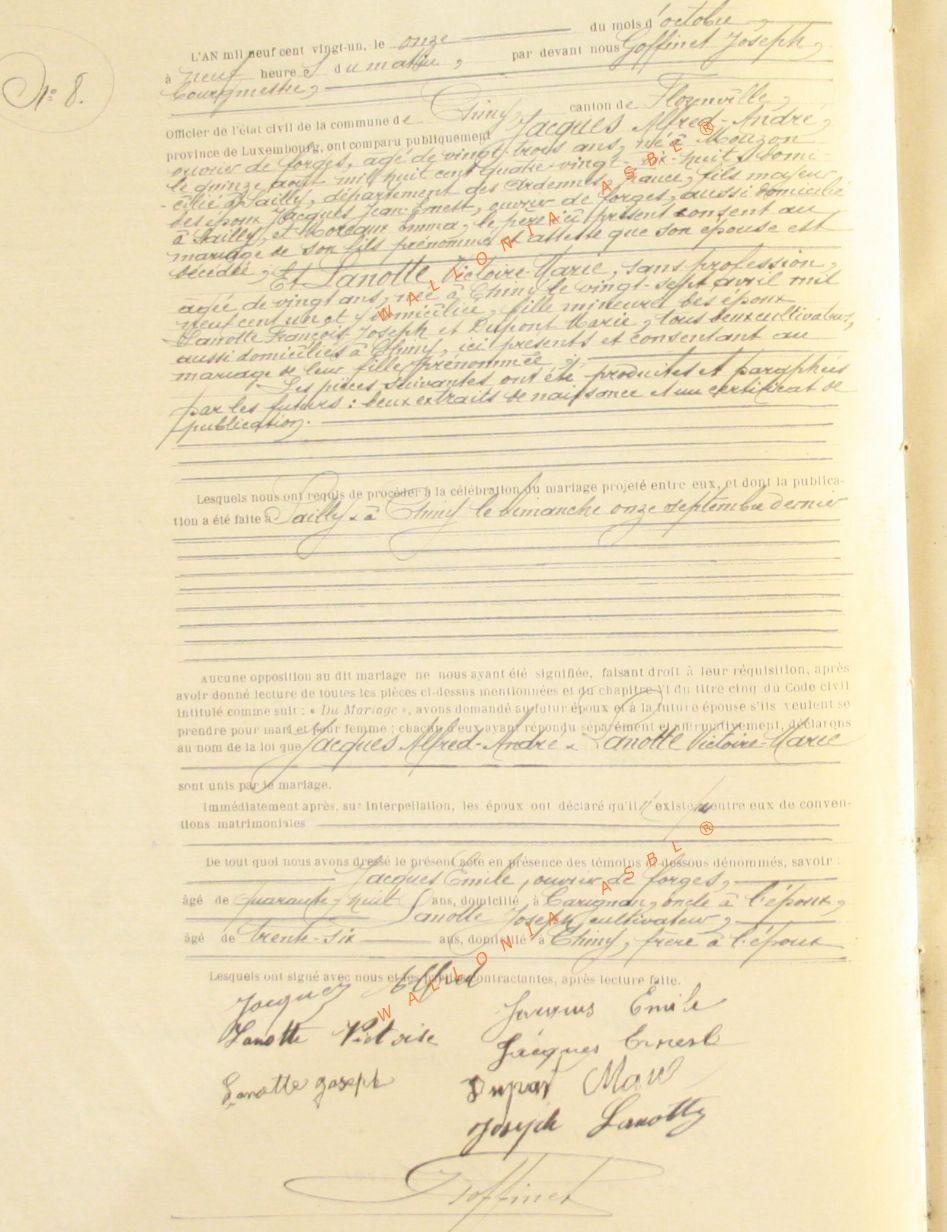 N° 8.
L'AN mil neuf cent vingt-un, le onze du mois d'octobre
à neuf heures du matin, par devant nous Goffinet Joseph,
Bourgmestre,
Officier de l'état civil de la commune de Chiny, canton de Florenville,
province de Luxembourg, ont comparu publiquement Jacques Alfred-André,
ouvrier de forges, âgé de vingt-trois ans, né à Mouzon
le quinze août mil huit cent quatre-vingt-dix-huit, domi-
cilié à Sailly, département des Ardennes, France, fils majeur
des époux Jacques Jean-Ernest, ouvrier de forges, aussi domicilié
à Sailly, et Moreaux Emma, le père ici présent consent au
mariage de son fils prénommé et atteste que son épouse est
décédée, Et Lanotte Victoire-Marie, sans profession,
agée de vingt ans, née à Chiny le vingt-sept avril mil
neuf cent un et y domiciliée, fille mineure des époux
Lanotte François Joseph et Dupont Marie, tous deux cultivateurs,
aussi domiciliés à Chiny, ici présents et consentant au
mariage de leur fille prénommée,
Les pièces suivantes ont été produites et paraphées
par les futurs : deux extraits de naissance et un certificat de
publication.
Lesquels nous ont requis de procéder à la célébration du mariage projeté entre eux, et dont la publica-
tion a été faite à Sailly & à Chiny le dimanche onze septembre dernier
Aucune opposition au dit mariage ne nous ayant été signifiée, faisant droit à leur réquisition, après
avoir donné lecture de toutes les pièces ci-dessus mentionnées et du chapitre VI du titre cinq du Code civil
intitulé comme suit : « Du Mariage », avons demandé au futur époux et à la future épouse s'ils veulent se
prendre pour mari et pour femme ; chacun d'eux ayant répondu séparément et affirmativement, déclarons
au nom de la loi que Jacques Alfred-André & Lanotte Victoire-Marie
sont unis par le mariage.
Immédiatement après, sur interpellation, les époux ont déclaré qu'il n'existe pas entre eux de conven-
tions matrimoniales
De tout quoi nous avons dressé le présent acte en présence des témoins ci-dessous dénommés, savoir :
Jacques Emile, ouvrier de forges,
âgé de quarante-huit ans, domicilié à Carignan, oncle à l'époux,
Lanotte Joseph, cultivateur,
âgé de trente-six ans, domicilié à Chiny, frère à l'épouse
Lesquels ont signé avec nous et les parties contractantes, après lecture faite.
Jacques Alfred
Jacques Emile
Lanotte Victoire
Jacques Ernest
Lanotte Joseph
Dupont Marie
Joseph Lanotte
Goffinet
WALLONIA ASBL ®
WALLONIA ASBL ®